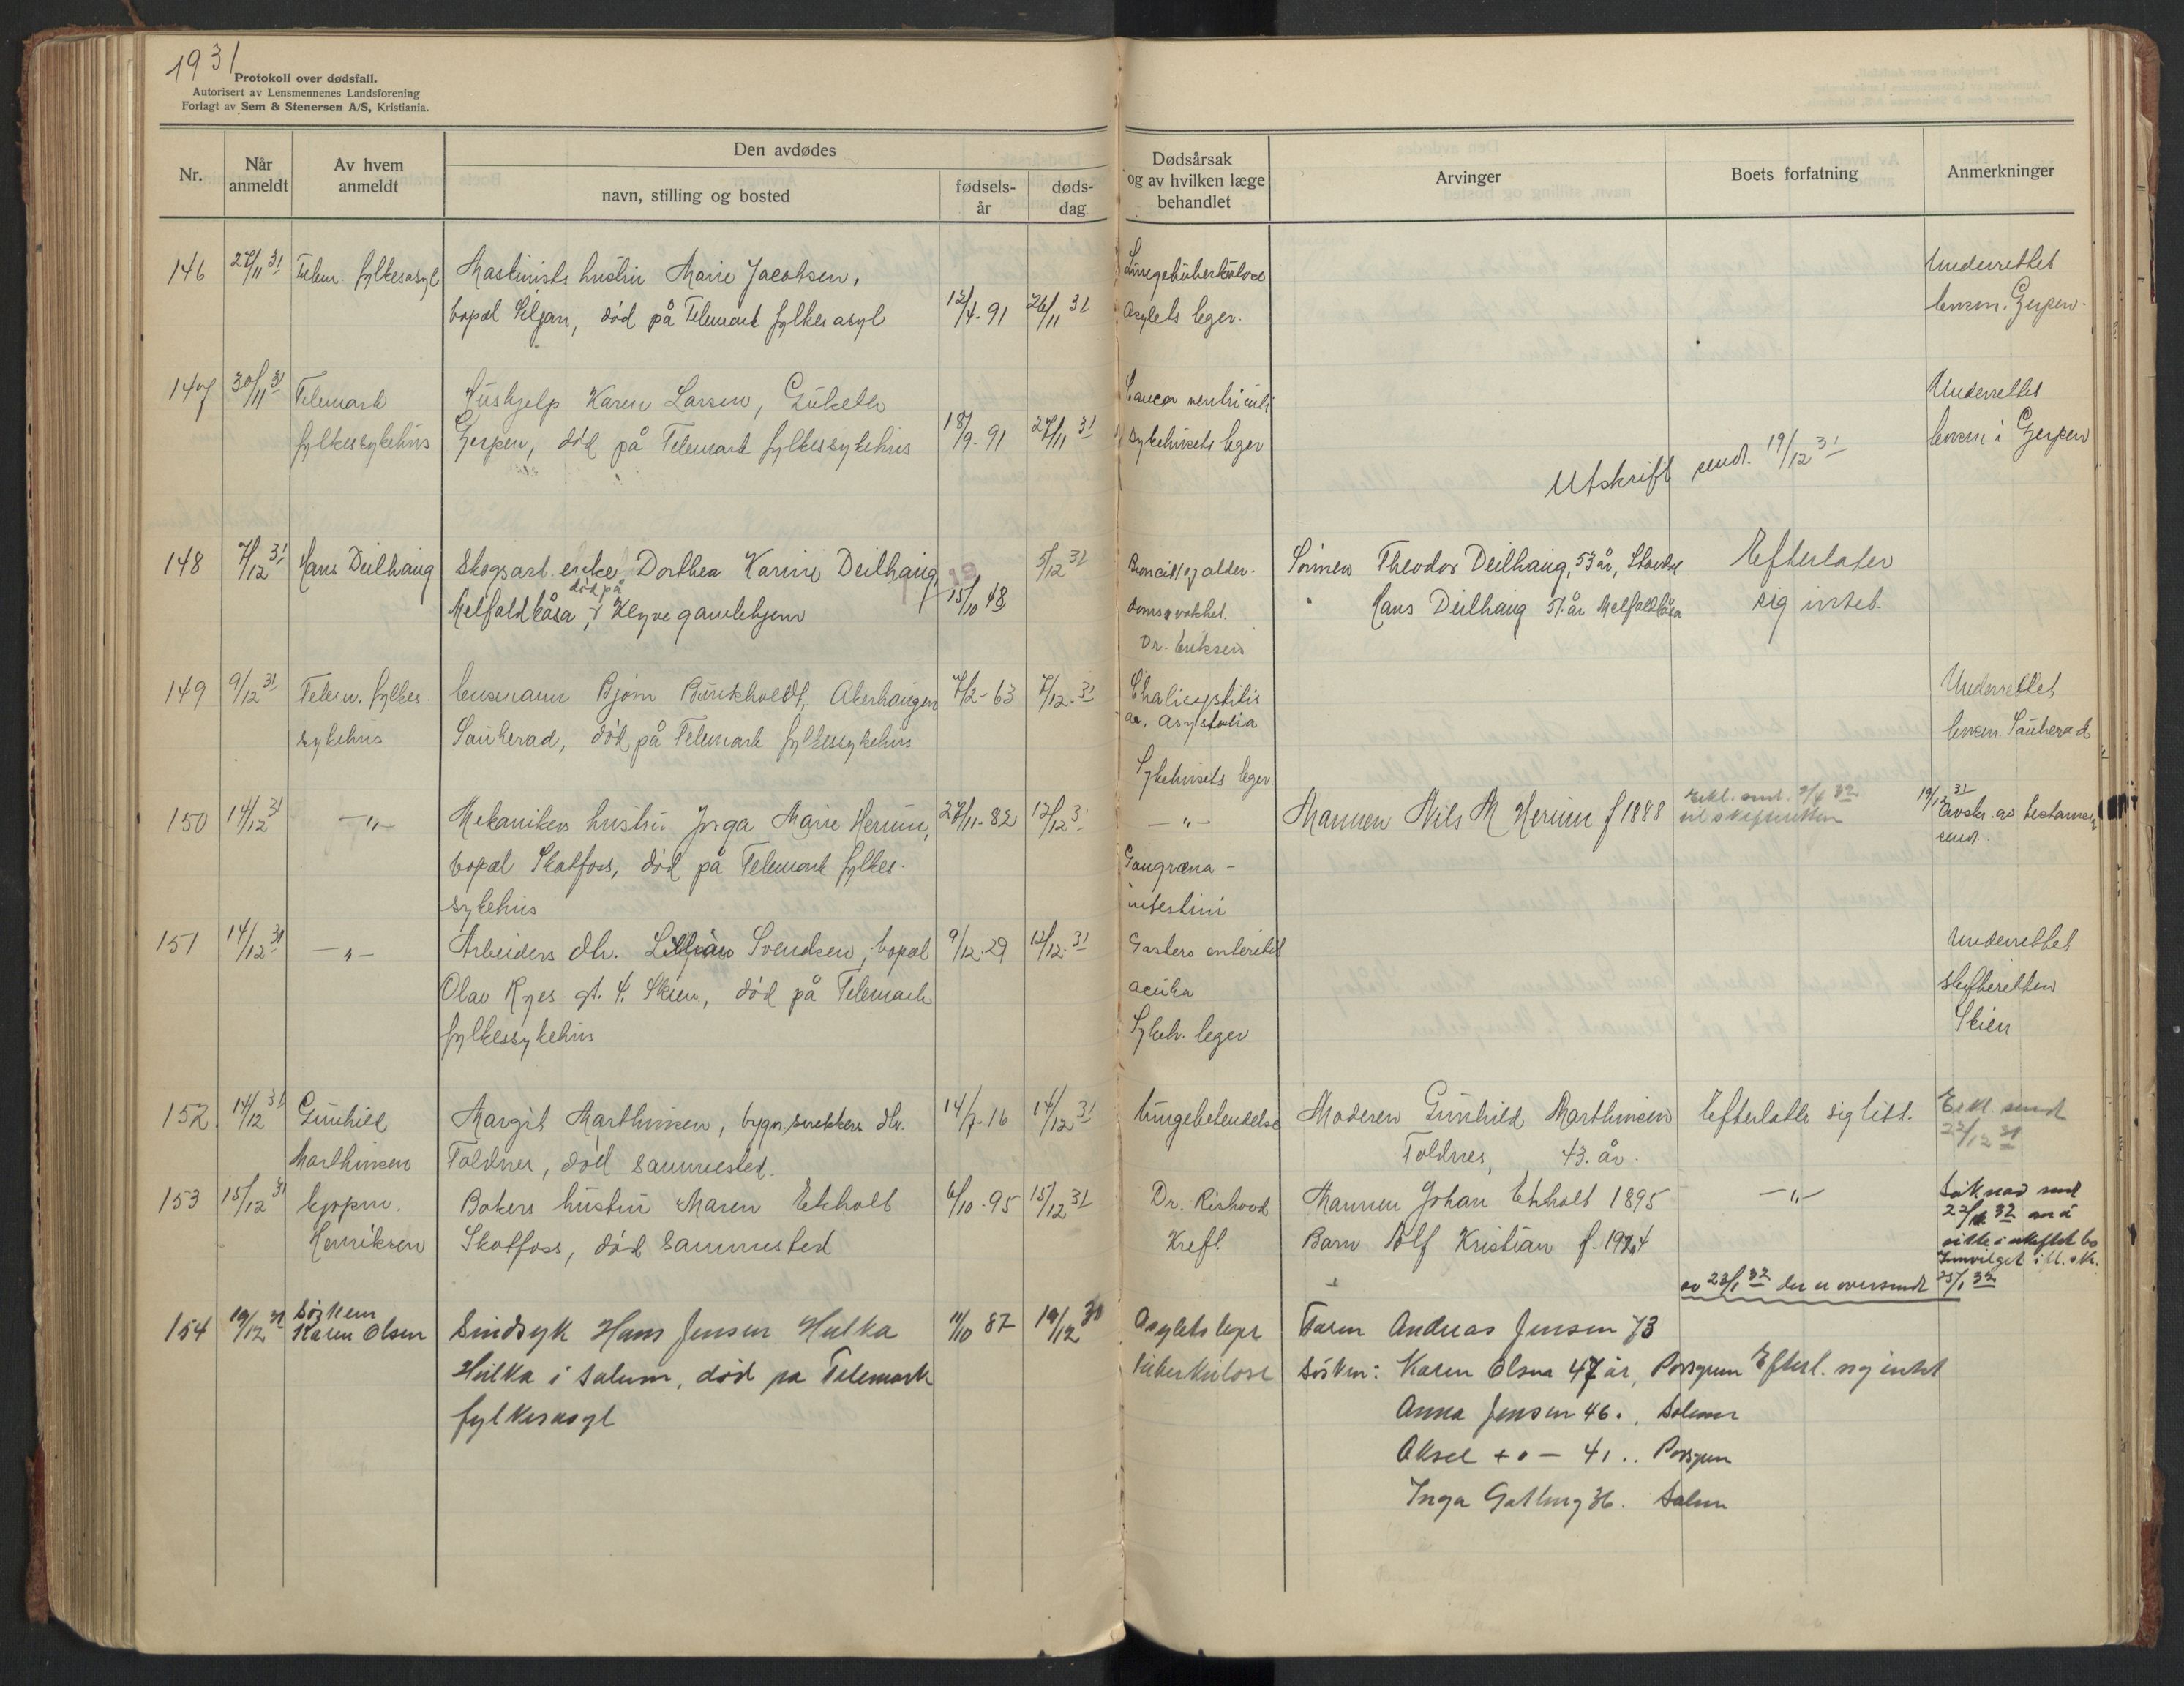 1931
Protokoll over dødsfall.
Autorisert av Lensmennenes Landsforening
Forlagt av Sem & Stenersen A/S, Kristiania.
Nr.
Når anmeldt
Av hvem anmeldt
Den avdødes
navn, stilling og bosted
fødsels-år
døds-dag
Dødsårsak og av hvilken læge behandlet
Arvinger
Boets forfatning
Anmerkninger
146 27/11 31 Telem. fylkesasyl Maskinists hustru Marie Jacobsen, Lungetuberkulose Underrettet
bopæl Siljan, død på Telemark fylkesasyl 12/4-91 26/11 31 Asylets leger. lensm. Gjerpen.
147 30/11 31 Telemark Hushjelp Karen Larsen, Cancer ventriculi Underrettet
fylkessykehus Gjerpen, død på Telemark fylkessykehus 18/9-91 27/11 31 Sykehusets leger lensm i Gjerpen
Utskrift send. 19/12 31
148 7/12 31 Hans Deilhaug Skogsarb. enke Dorthea Karine Deilhaug, 5/12 31 alder- Sønnen Theodor Deilhaug, 53 år, Efterlater
død på
Melfaldkåsa, Klyve gamlehjem 15/10 48 domssvakhet. " Hans Deilhaug 51 år Melfaldkåsa sig intet.
Dr. Eriksen
149 9/12 31 Telem. fylkes- lensmann Bjørn Burkholdt, Akerhaugen 7/2-63 7/12-31 Underrettet
sykehus Sauherad, død på Telemark fylkessykehus ac. asystolia lensm. Sauherad
Sykehusets leger
150 14/12 31 -"- Mekanikers hustru Marie Herum, 27/11-82 12/12 31 -"- Mannen Nils M Herum f 1888 Erkl. send. 2/4 32 19/12 31 av testament
til skifteretten send.
bopæl Skotfoss, død på Telemark fylkes- Gangræna-
sykehus intestini
151 14/12 31 -"- Arbeiders dtr. Lillian Svendsen, bopæl 9/12-29 12/12-31 Gastero enteritis Underrettet
Olav Ryes gt. 4. Skien, død på Telemark acuta skifteretten
fylkessykehus Sykeh. leger Skien
152. 14/12 31 Gunhild Margit Marthinsen, bygn.snekkers dtr. 14/7-16 14/12 31 lungebetendelse Moderen Gunhild Marthinsen Efterlatte sig litt. Erkl. send
Marthinsen Toldnes, død sammested. Toldnes, 43. år. 22/12 31
153 15/12 31 Henriksen Bakers hustru Maren Ekholt 6/10-95 15/12 31 Dr. Rishovd Mannen Johan Ekholt 1895 -"- Søknad send
Skotfoss, død sammested Kreft. Barn Rolf Kristian f. 1924 22/1 32 om å
sitte i uskiftet bo
Innvilget
av 23/1 32 der er oversendt 25/1 32
154 19/12 31 Søsken Karen Olsen Sindsyk Hans Jensen Hulka 11/10 87 19/12 30 Asylets leger Faren Andreas Jensen 73
Hulka i Solum, død på Telemark Tuberkulose Søsken: Karen Olsen 47 år, Porsgrunn Efterl. sig intet
fylkesasyl Anna Jensen 46., Solum
Aksel -"- 41.. Porsgrunn
Inga 36. Solum